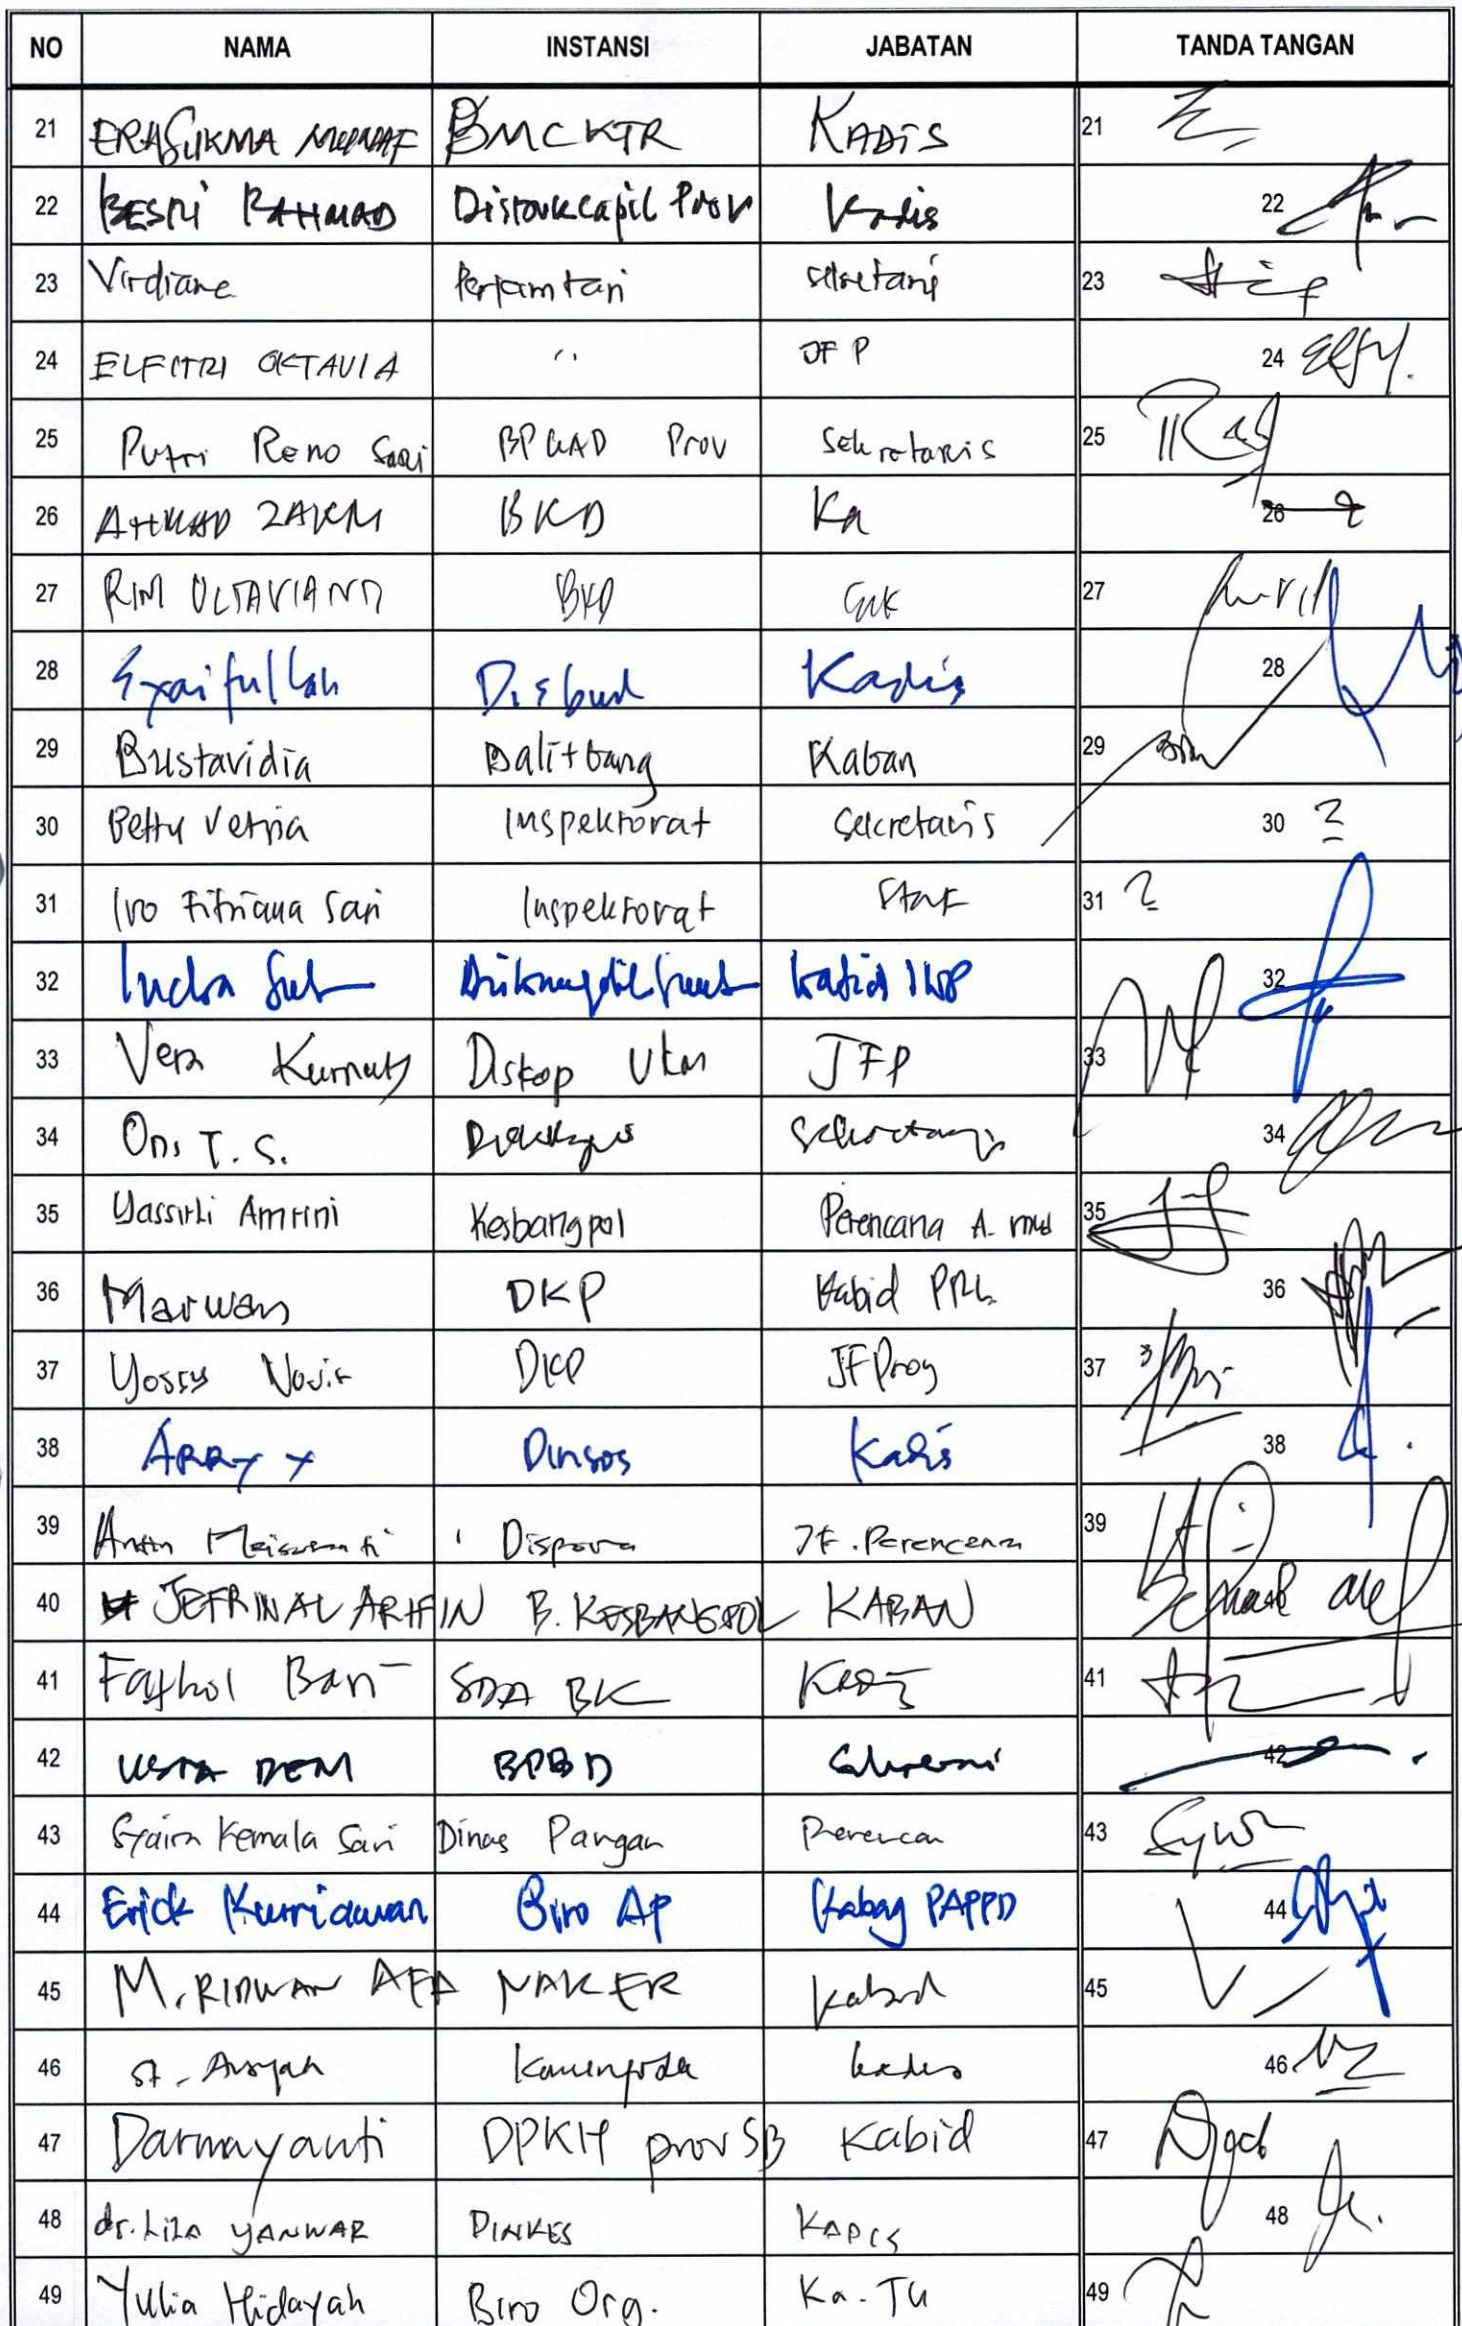 NO NAMA INSTANSI JABATAN TANDA TANGAN
21 ERASUKMA MUNAF BMCKTR KADIS 21
22 BESRI RAHMAD Disdukcapil Prov Kadis 22
23 Virdiana Perkimtan sekretaris 23
24 ELFITRI OKTAVIA '' JFP 24
25 Putri Reno Sari BPKAD Prov Sekretaris 25
26 AHMAD ZAKRI BKD Ka 26
27 OCTAVIANO BKD 27
28 Syaifullah Disbud Kadis 28
29 Bustavidia Balitbang Kaban 29
30 Betty Vetria Inspektorat Sekretaris 30
31 Ivo Fitriana Sari Inspektorat Staf 31
32 Indra Kabid 32
33 Vera Diskop Ukm JFP 33
34 Oni T. S. Sekretaris 34
35 Yassirli Amrini Kesbangpol Perencana A. mud 35
36 Marwan DKP Kabid PRL 36
37 Yossy Novir DKP JFProg 37
38 ARRY Y Dinsos Kadis 38
39 Dispora JF. Perencana 39
40 JEFRINAL ARIFIN B. KESBANGPOL KABAN
41 Fathol Bari SDA BK Kadis 41
42 BPBD Sekretaris 42
43 Kemala Sari Dinas Pangan Perencan 43
44 Erick Kurniawan Biro Ap Kabag PAPPD 44
45 M. RIDWAN NAKER Kabid 45
46 St. Kadis 46
47 Darmayanti DPKH prov SB Kabid 47
48 dr. Lila YANWAR DINKES KADIS 48
49 Yulia Hidayah Biro Org. Ka. TU 49